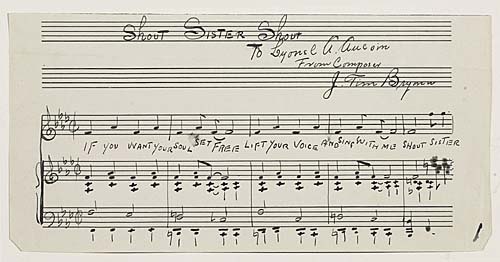 Shout Sister Shout
To Lyonel A. Aucoin
From Composer
J. Tim Brymn
IF YOU WANT YOUR SOUL SET FREE LIFT YOUR VOICE AND SING WITH ME SHOUT SISTER